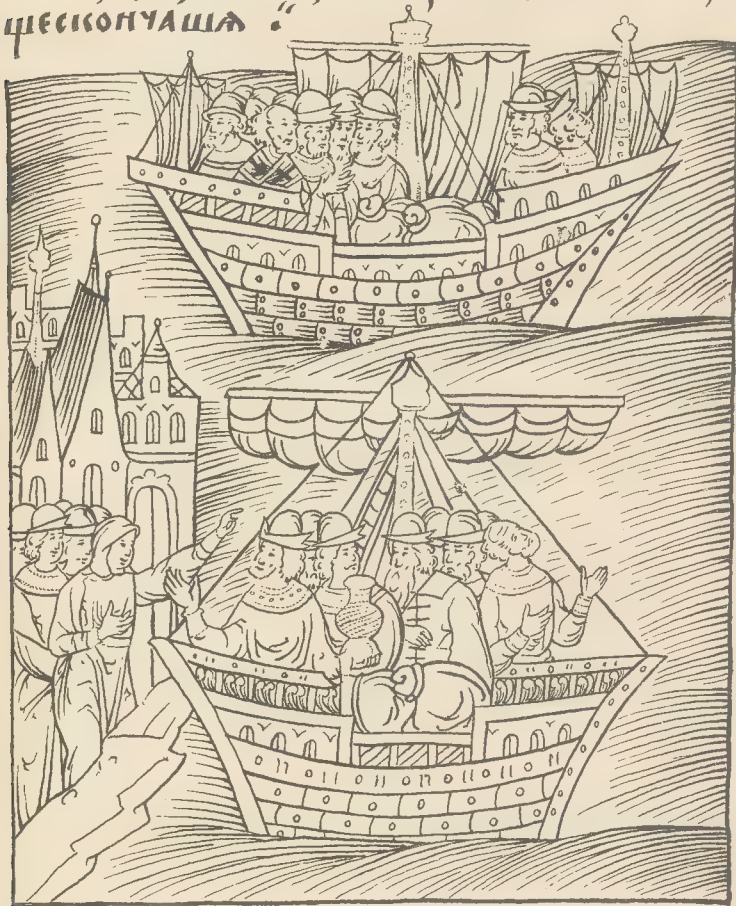 щескончашѧ